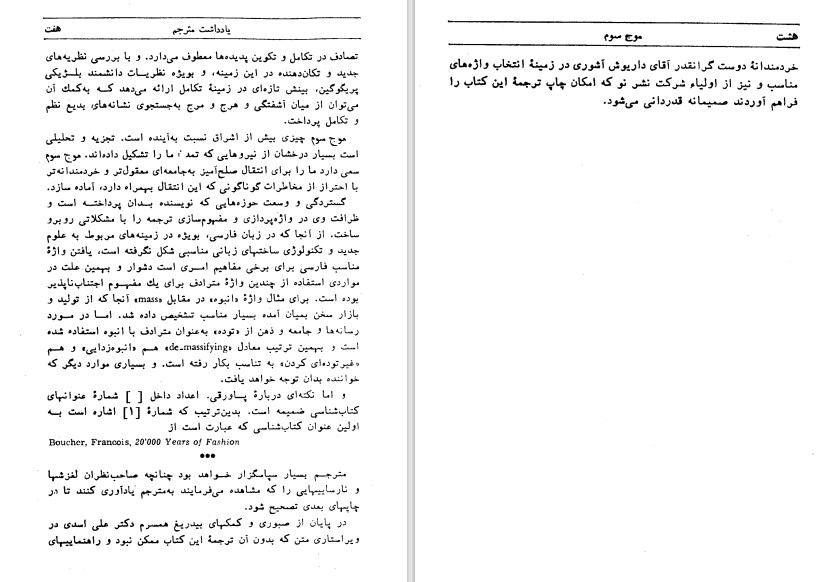 یادداشت مترجم هفت
تصادف در تکامل و تکوین پدیده‌ها معطوف می‌دارد. و با بررسی نظریه‌های
جدید و تکان‌دهنده در این زمینه، و بویژه نظریات دانشمند بلـژیکی
پریگوگین، بینش تازه‌ای در زمینهٔ تکامل ارائه می‌دهد کـه به‌کمك آن
می‌توان از میان آشفتگی و هرج و مرج به‌جستجوی نشانه‌های بدیع نظم
و تکامل پرداخت.
موج سوم چیزی بیش از اشراق نسبت به‌آینده است. تجزیه و تحلیلی
است بسیار درخشان از نیروهایی که تمدن ما را تشکیل داده‌اند. موج سوم
سعی دارد ما را برای انتقال صلح‌آمیز به‌جامعه‌ای معقول‌تر و خردمندانه‌تر
با احتراز از مخاطرات گوناگونی که این انتقال بهمراه دارد، آماده سازد.
گستردگی و وسعت حوزه‌هایی که نویسنده بـدان پرداختـه است و
ظرافت وی در واژه‌پردازی و مفهوم‌سازی ترجمه را با مشکلاتی روبرو
ساخت. از آنجا که در زبان فارسی، بویژه در زمینه‌های مربوط به علوم
جدید و تکنولوژی ساختهای زبانی مناسبی شکل نگرفته است، یافتن واژهٔ
مناسب فارسی برای برخی مفاهیم امـری است دشوار و بهمین علت در
مواردی استفاده از چندین واژهٔ مترادف برای یك مفهـوم اجتناب‌ناپذیر
بوده است. برای مثال واژهٔ «انبوه» در مقابل «mass» آنجا که از تولید و
بازار سخن بمیان آمده بسیار مناسب تشخیص داده شد. امـا در مـورد
رسانه‌ها و جامعه و ذهن از «توده» به‌عنوان مترادف با انبوه استفاده شده
است و بهمین ترتیب معادل «de-massifying» هم «انبوه‌زدایی» و هـم
«غیرتوده‌ای کردن» به تناسب بکار رفته است. و بسیاری موارد دیگر که
خواننده بدان توجه خواهد یافت.
و اما نکته‌ای دربارهٔ پـاورقی. اعداد داخل [ ] شمارهٔ عنوانهای
کتاب‌شناسی ضمیمه است. بدین‌ترتیب که شمارهٔ [۱] اشاره است بـه
اولین عنوان کتاب‌شناسی که عبارت است از
Boucher, Francois, 20'000 Years of Fashion
●●●
مترجـم بسیار سپاسگزار خـواهد بود چنانچه صاحب‌نظران لغزشها
و نارساییهایی را که مشاهده می‌فرمایند به‌مترجم یادآوری کنند تا در
چاپهای بعدی تصحیح شود.
در پایان از صبوری و کمکهای بیدریغ همسرم دکتر علی اسدی در
ویراستاری متن که بدون آن ترجمهٔ این کتاب ممکن نبود و راهنماییهای
هشت موج سوم
خردمندانهٔ دوست گرانقدر آقای داریوش آشوری در زمینهٔ انتخاب واژه‌های
مناسب و نیز از اولیاء شرکت نشر نو که امکان چاپ ترجمهٔ این کتاب را
فراهم آوردند صمیمانه قدردانی می‌شود.